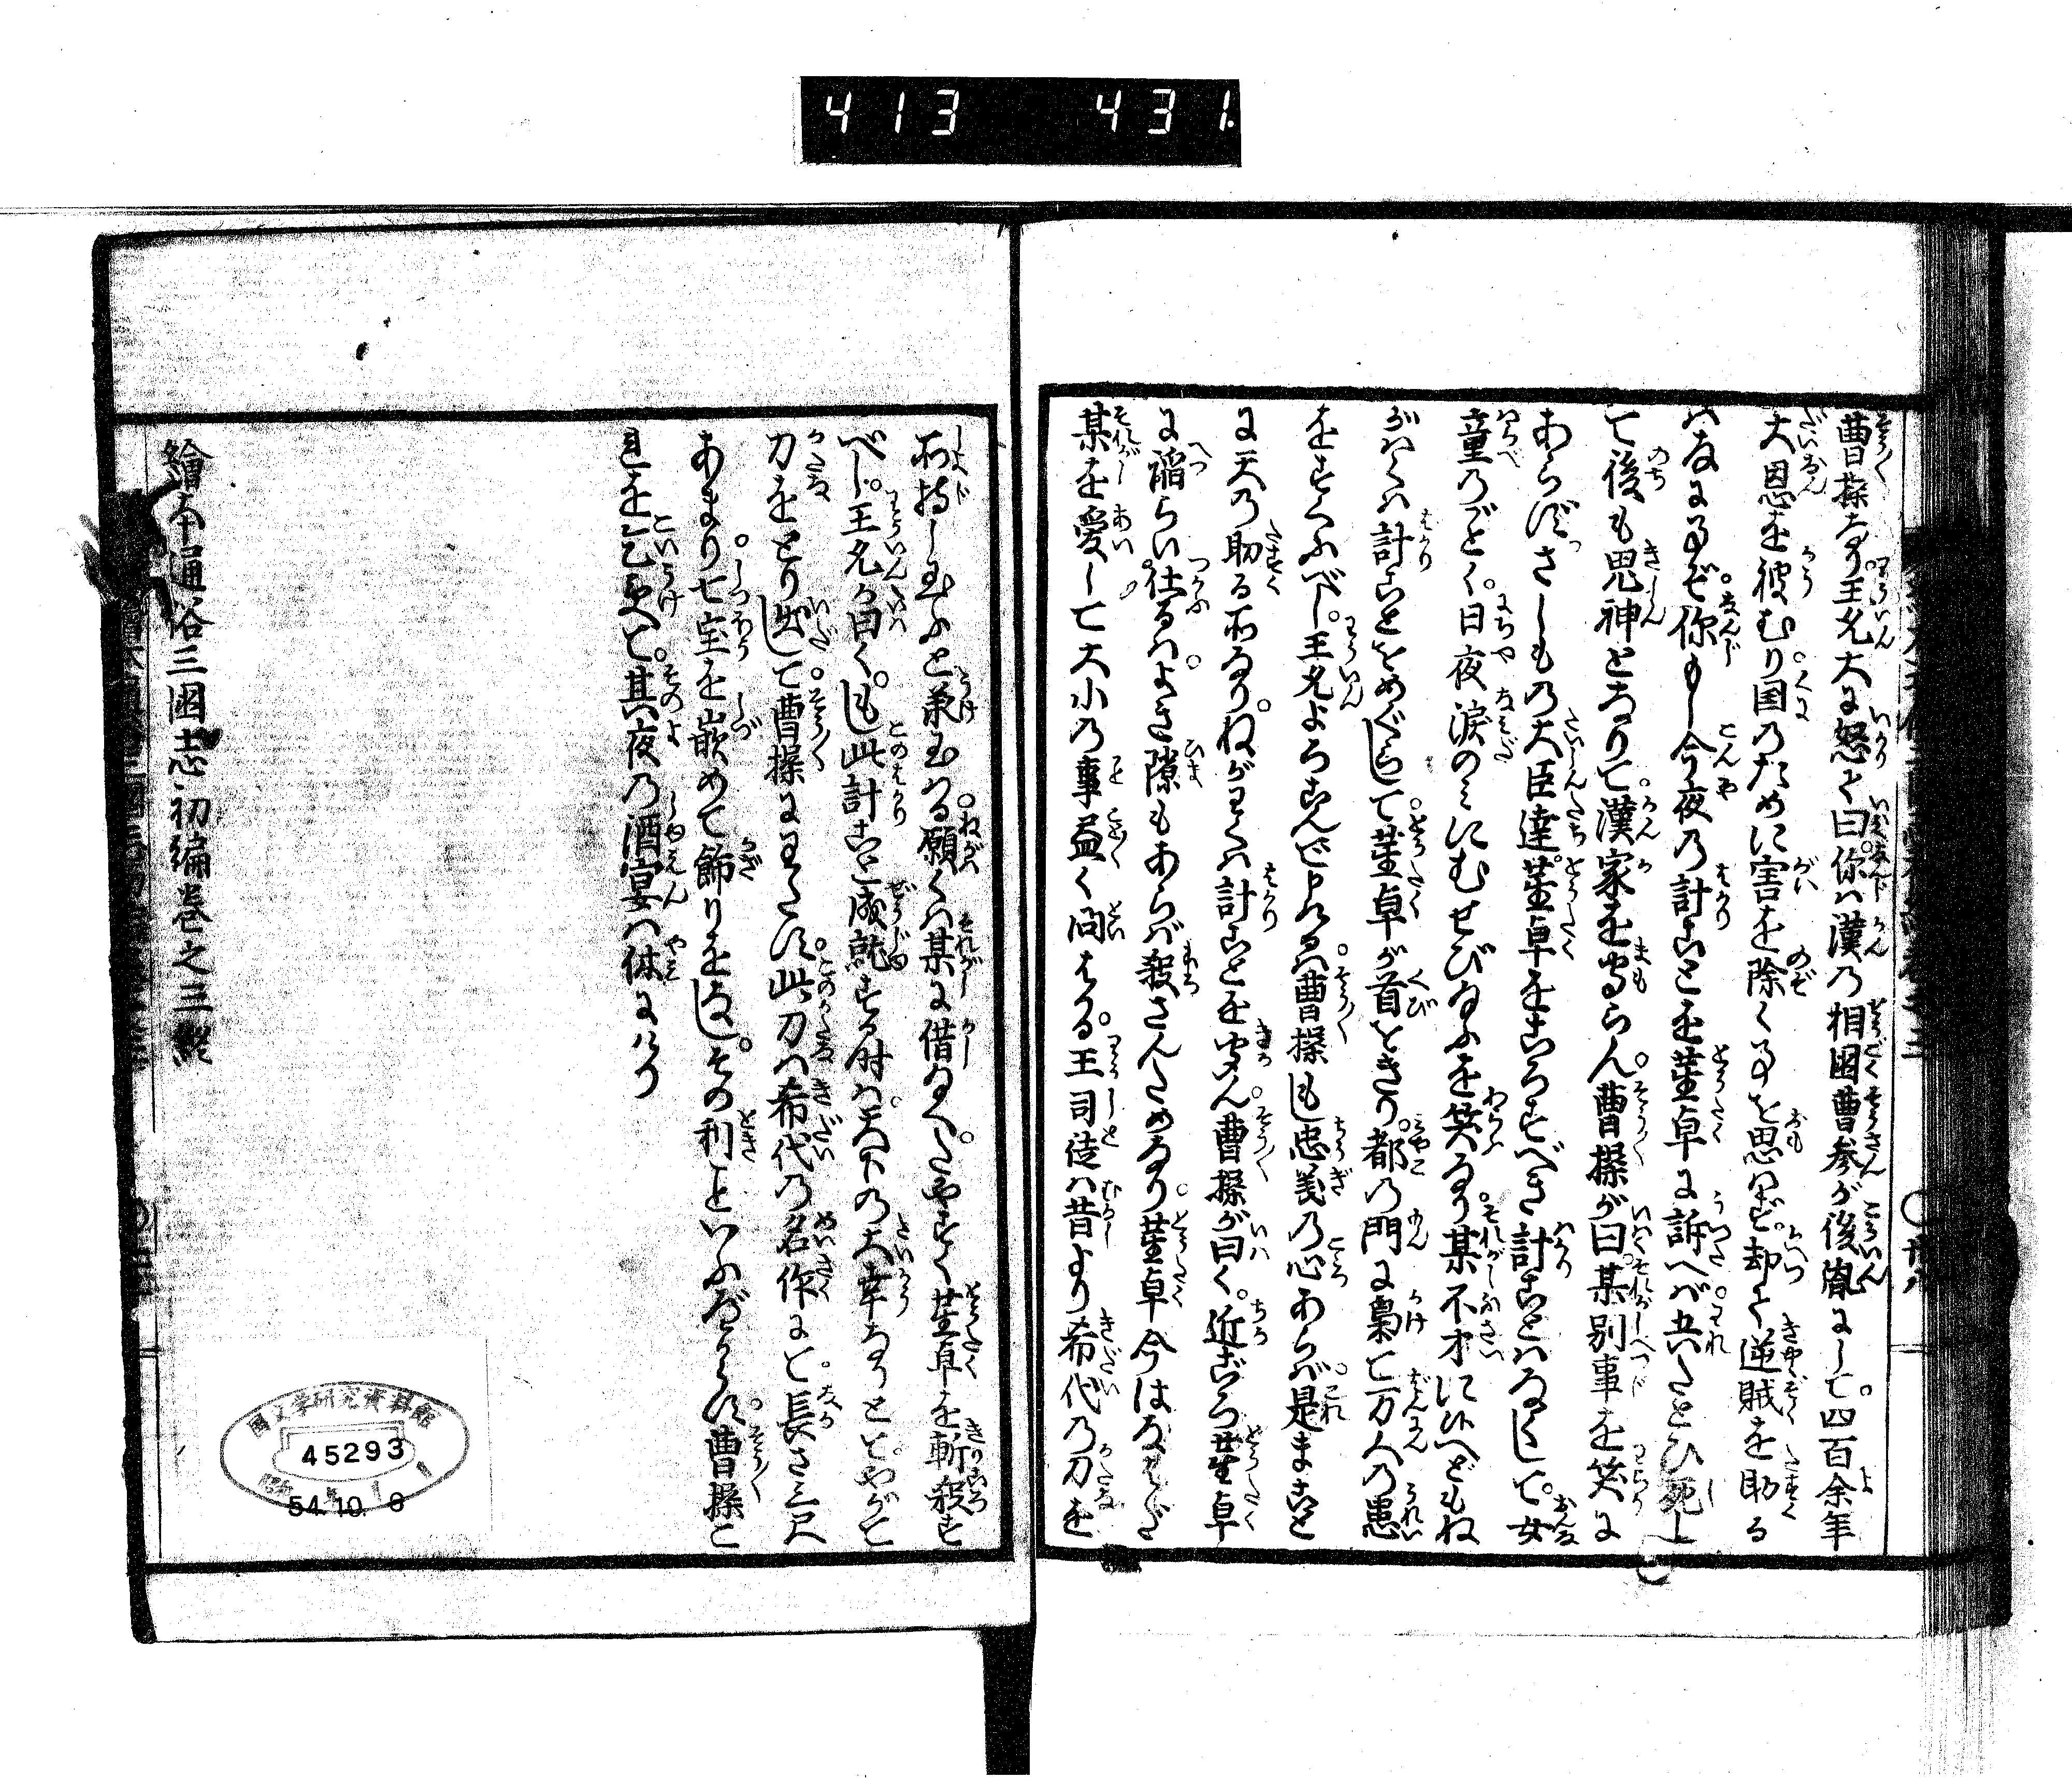 413 431
曹操なり。王允大に怒て曰。你ハ漢の相国曹参が後胤にして。四百余年
大恩を被むり。国のために害を除く事を思ハず。却て逆賊を助る
ハなに事ぞ。你もし今夜の計ことを董卓に訴へバ。吾たとひ死し
て後も鬼神となりて。漢家を守らん。曹操が曰。某別事を笑に
あらず。さしもの大臣達。董卓をころすべき計ことハなくして。女
童のごとく。日夜涙のミにむせびゐふを笑なり。某不才に候へどもね
がハくハ計ことをめぐらして。董卓が首をきり。都の門に梟て万人の患
をすくふべし。王允よろこんで
曹操もし忠義の心あらバ。是まこと
に天の助る所なり。ねがわくハ計ことを聞ん。曹操が曰く。近ごろ董卓
に諂らい仕るハ。よき隙もあらバ殺さんためなり。董卓今はなはだ
某を愛して大小の事尽く問はる。王司徒ハ昔より希代の刀を
所持し玉ふと承玉ハる。願くハ某に借
たやすく董卓を斬殺す
べし。王允が曰く。もし此計こと成就する時ハ。天下の大幸なりとて。やがて
刀をとり出して。曹操にわたす。此刀ハ希代の名作にて。長さ三尺
あまり。七宝を嵌めて飾りをなし。その利こといふばからず。曹操こ
れを乞受て。其夜の酒宴ハ休にけり
繪本通俗三國志初編巻之三終
國文学研究資料館
45293
54.10.8